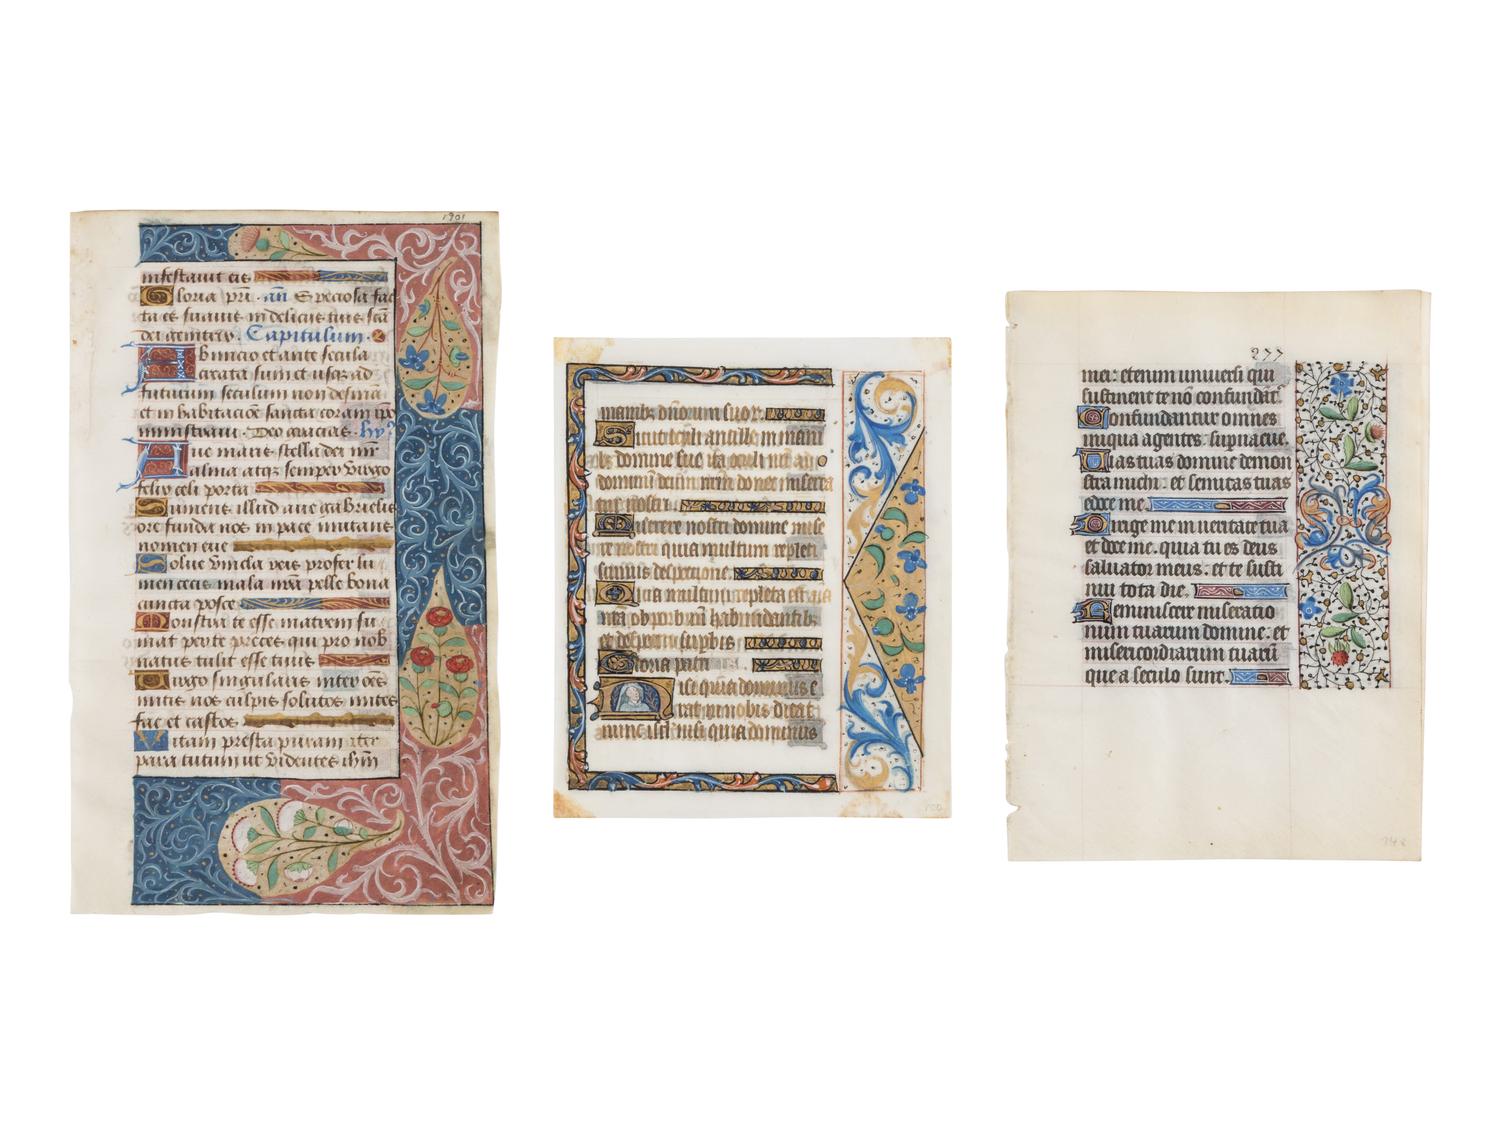 1901
infestavit eis
Gloria pri. an Speciosa fac
ta es suavis in deliciis tuis scā
dei genitrix. Capitulum.
Ab inicio et ante secula
creata sum et usqz ad
futurum seculum non desinā
et in habitacōe sancta coram ipo
ministravi. Deo gracias. hy
Aue maris stella dei mr
alma atqz semper virgo
felix celi porta
Sumens illud aue gabrielis
ore funda nos in pace mutans
nomen eue
Solue vincla reis profer lu
men cecis mala nrā pelle bona
cuncta posce
Monstra te esse matrem su
mat per te preces qui pro nob
natus tulit esse tuus
Virgo singularis inter oēs
mitis nos culpis solutos mites
fac et castos
Vitam presta puram iter
para tutum ut videntes ihm
manibz dnōrum suor.
Sicut oculi ancille in mani
bus domine sue ita oculi nrī ad
dominum deum nrm donec miserea
tur nostri
Miserere nostri domine mise
rere nostri quia multum repleti
sumus despectione.
Quia multum repleta est aīa
nrā obprobrium habundantibz
et despectio supbis
Gloria patri
Nisi quia dominus e
rat in nobis dicat
nunc isrl nisi quia dominus
100
277
mei: etenim universi qui
sustinent te nō confundāt.
Confundantur omnes
iniqua agentes: supvacue.
Vias tuas domine demon
stra michi: et semitas tuas
edoce me.
Dirige me in veritate tua
et doce me. quia tu es deus
salvator meus. et te susti
nui tota die.
Reminiscere miseratio
num tuarum domine: et
misericordiarum tuarū
que a seculo sunt.
148